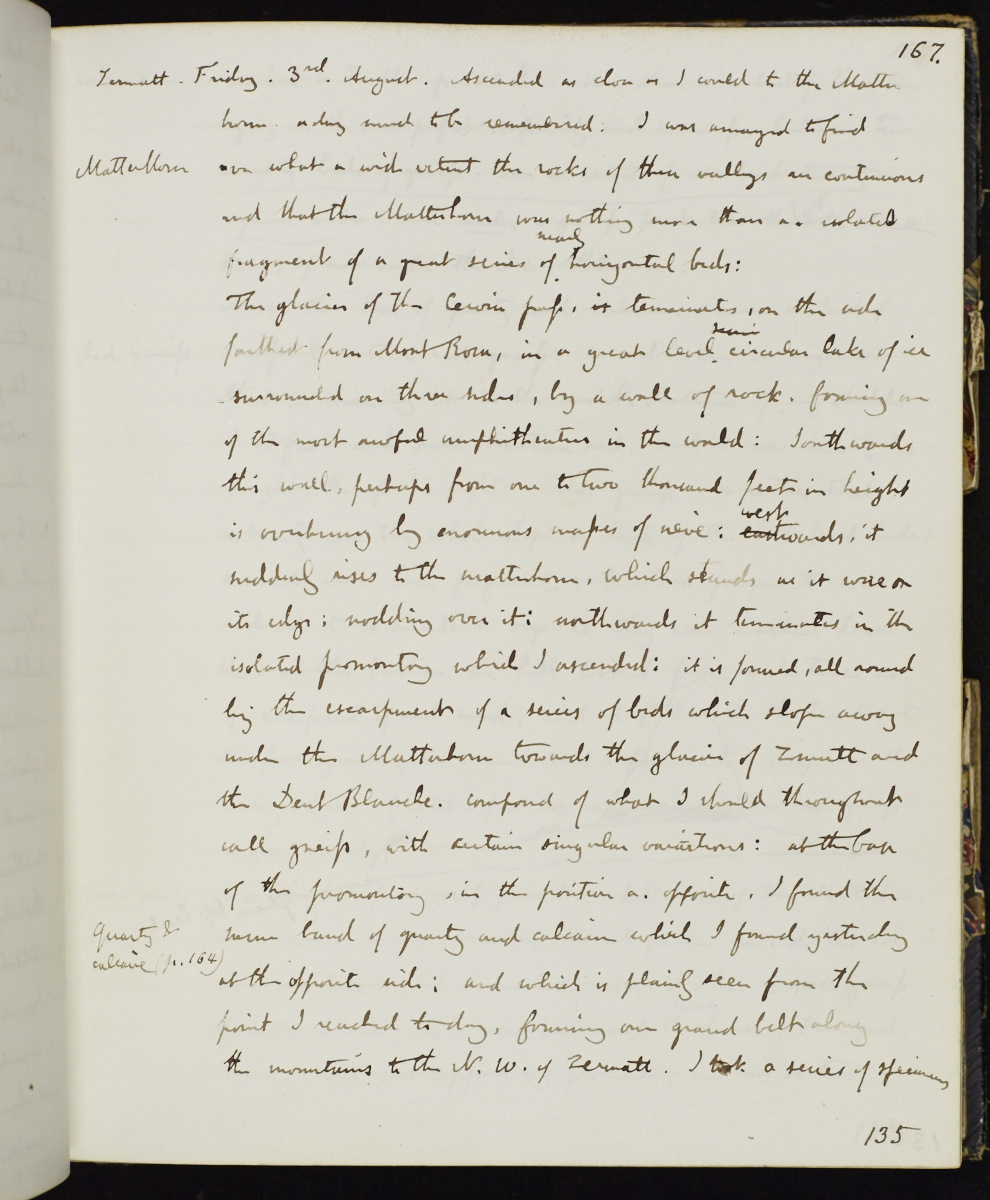 167.
Zermatt. Friday. 3rd. August. Ascended as close as I could to the Matter
horn. a day much to be remembered. I was amazed to find
Matterhorn
over what a wide extent the rocks of these valleys are continuous
and that the Matterhorn was nothing more than an isolated
fragment of a great series of nearly horizontal beds:
The glacier of the Cervin pass, it terminates, on the side
farthest from Mont Rosa, in a great level semi circular lake of ice
surrounded on three sides, by a wall of rock. forming one
of the most awful amphitheatres in the world: Southwards
this wall, perhaps from one to two thousand feet in height
is overhung by enormous masses of neve: eastwards west, it
suddenly rises to the matterhorn, which stands as it were on
its edge; nodding over it: northwards it terminates in the
isolated promontory which I ascended: it is formed, all round
by the escarpment of a series of beds which slope away
under the Matterhorn towards the glacier of Zmutt and
the Dent Blanche. composed of what I should throughout
call gneiss, with certain singular variations: at the base
of the promontory, in the position a. opposite, I found the
Quartz &
calcaire (p. 164)
same band of quartz and calcaire which I found yesterday
at the opposite side; and which is plainly seen from the
point I reached to day, forming one grand belt along
the mountains to the N. W. of Zermatt. I took a series of specimens
135